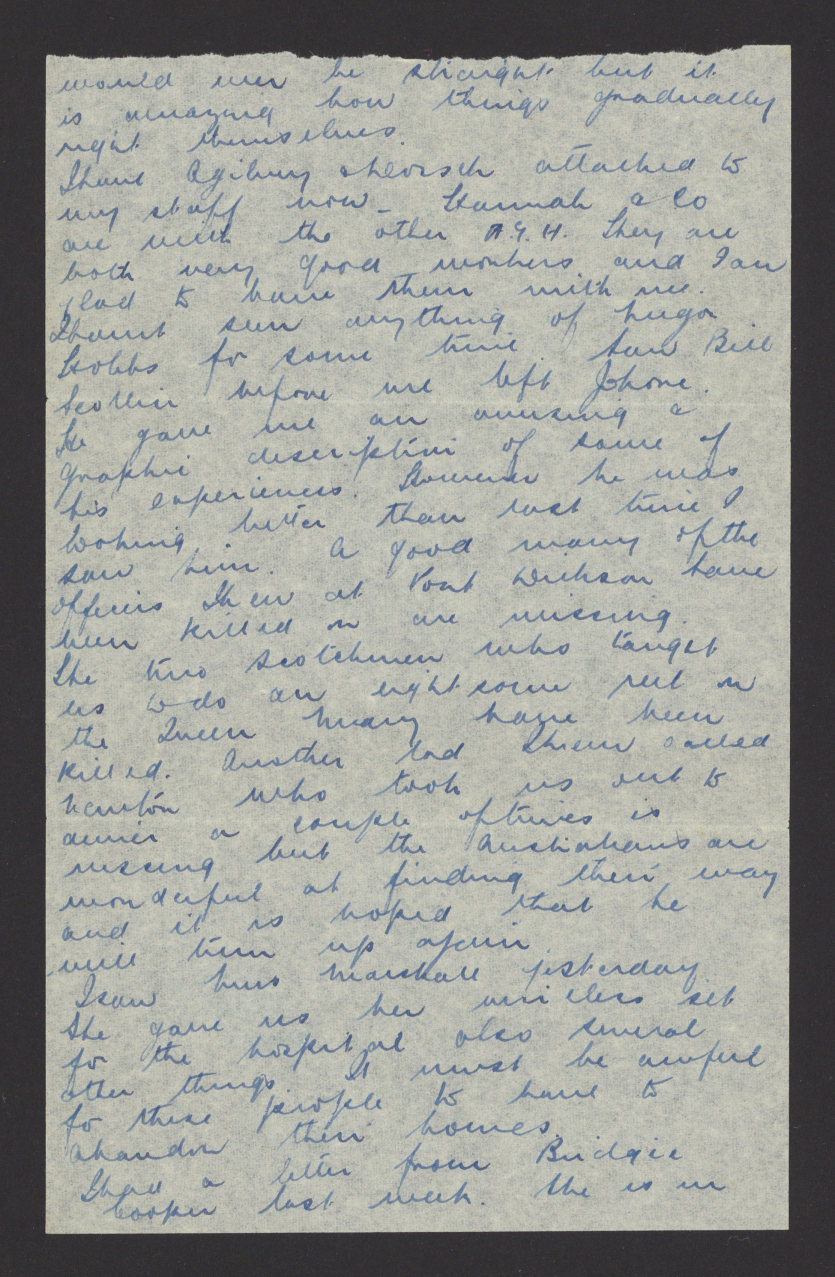 would ever be straight but it
is amazing how things gradually
right themselves.
I have Ogilvy & attached to
my staff now - Hannah & Co
are with the other A.G.H. They are
both very good workers and I am
glad to have them with me.
I havnt seen anything of
Hobbs for some time, saw Bill
before we left Johore.
He gave me an amusing &
graphic description of some of
his experiences. However he was
looking better than last time I
saw him. A good many of the
officers I knew at Port Dickson have
been killed or are missing.
The two Scotchmen who taught
us to do an eightsome reel on
the Queen Mary have been
killed. Another lad I knew called
who took us out to
dinner a couple of times is
missing but the Australians are
wonderful at finding their way
and it is hoped that he
will turn up again.
I saw Mrs Marshall yesterday
She gave us her wireless set
for the hospital also several
other things. It must be awful
for these people to have to
abandon their homes.
I had a letter from Bridgie
Cooper last week. She is in